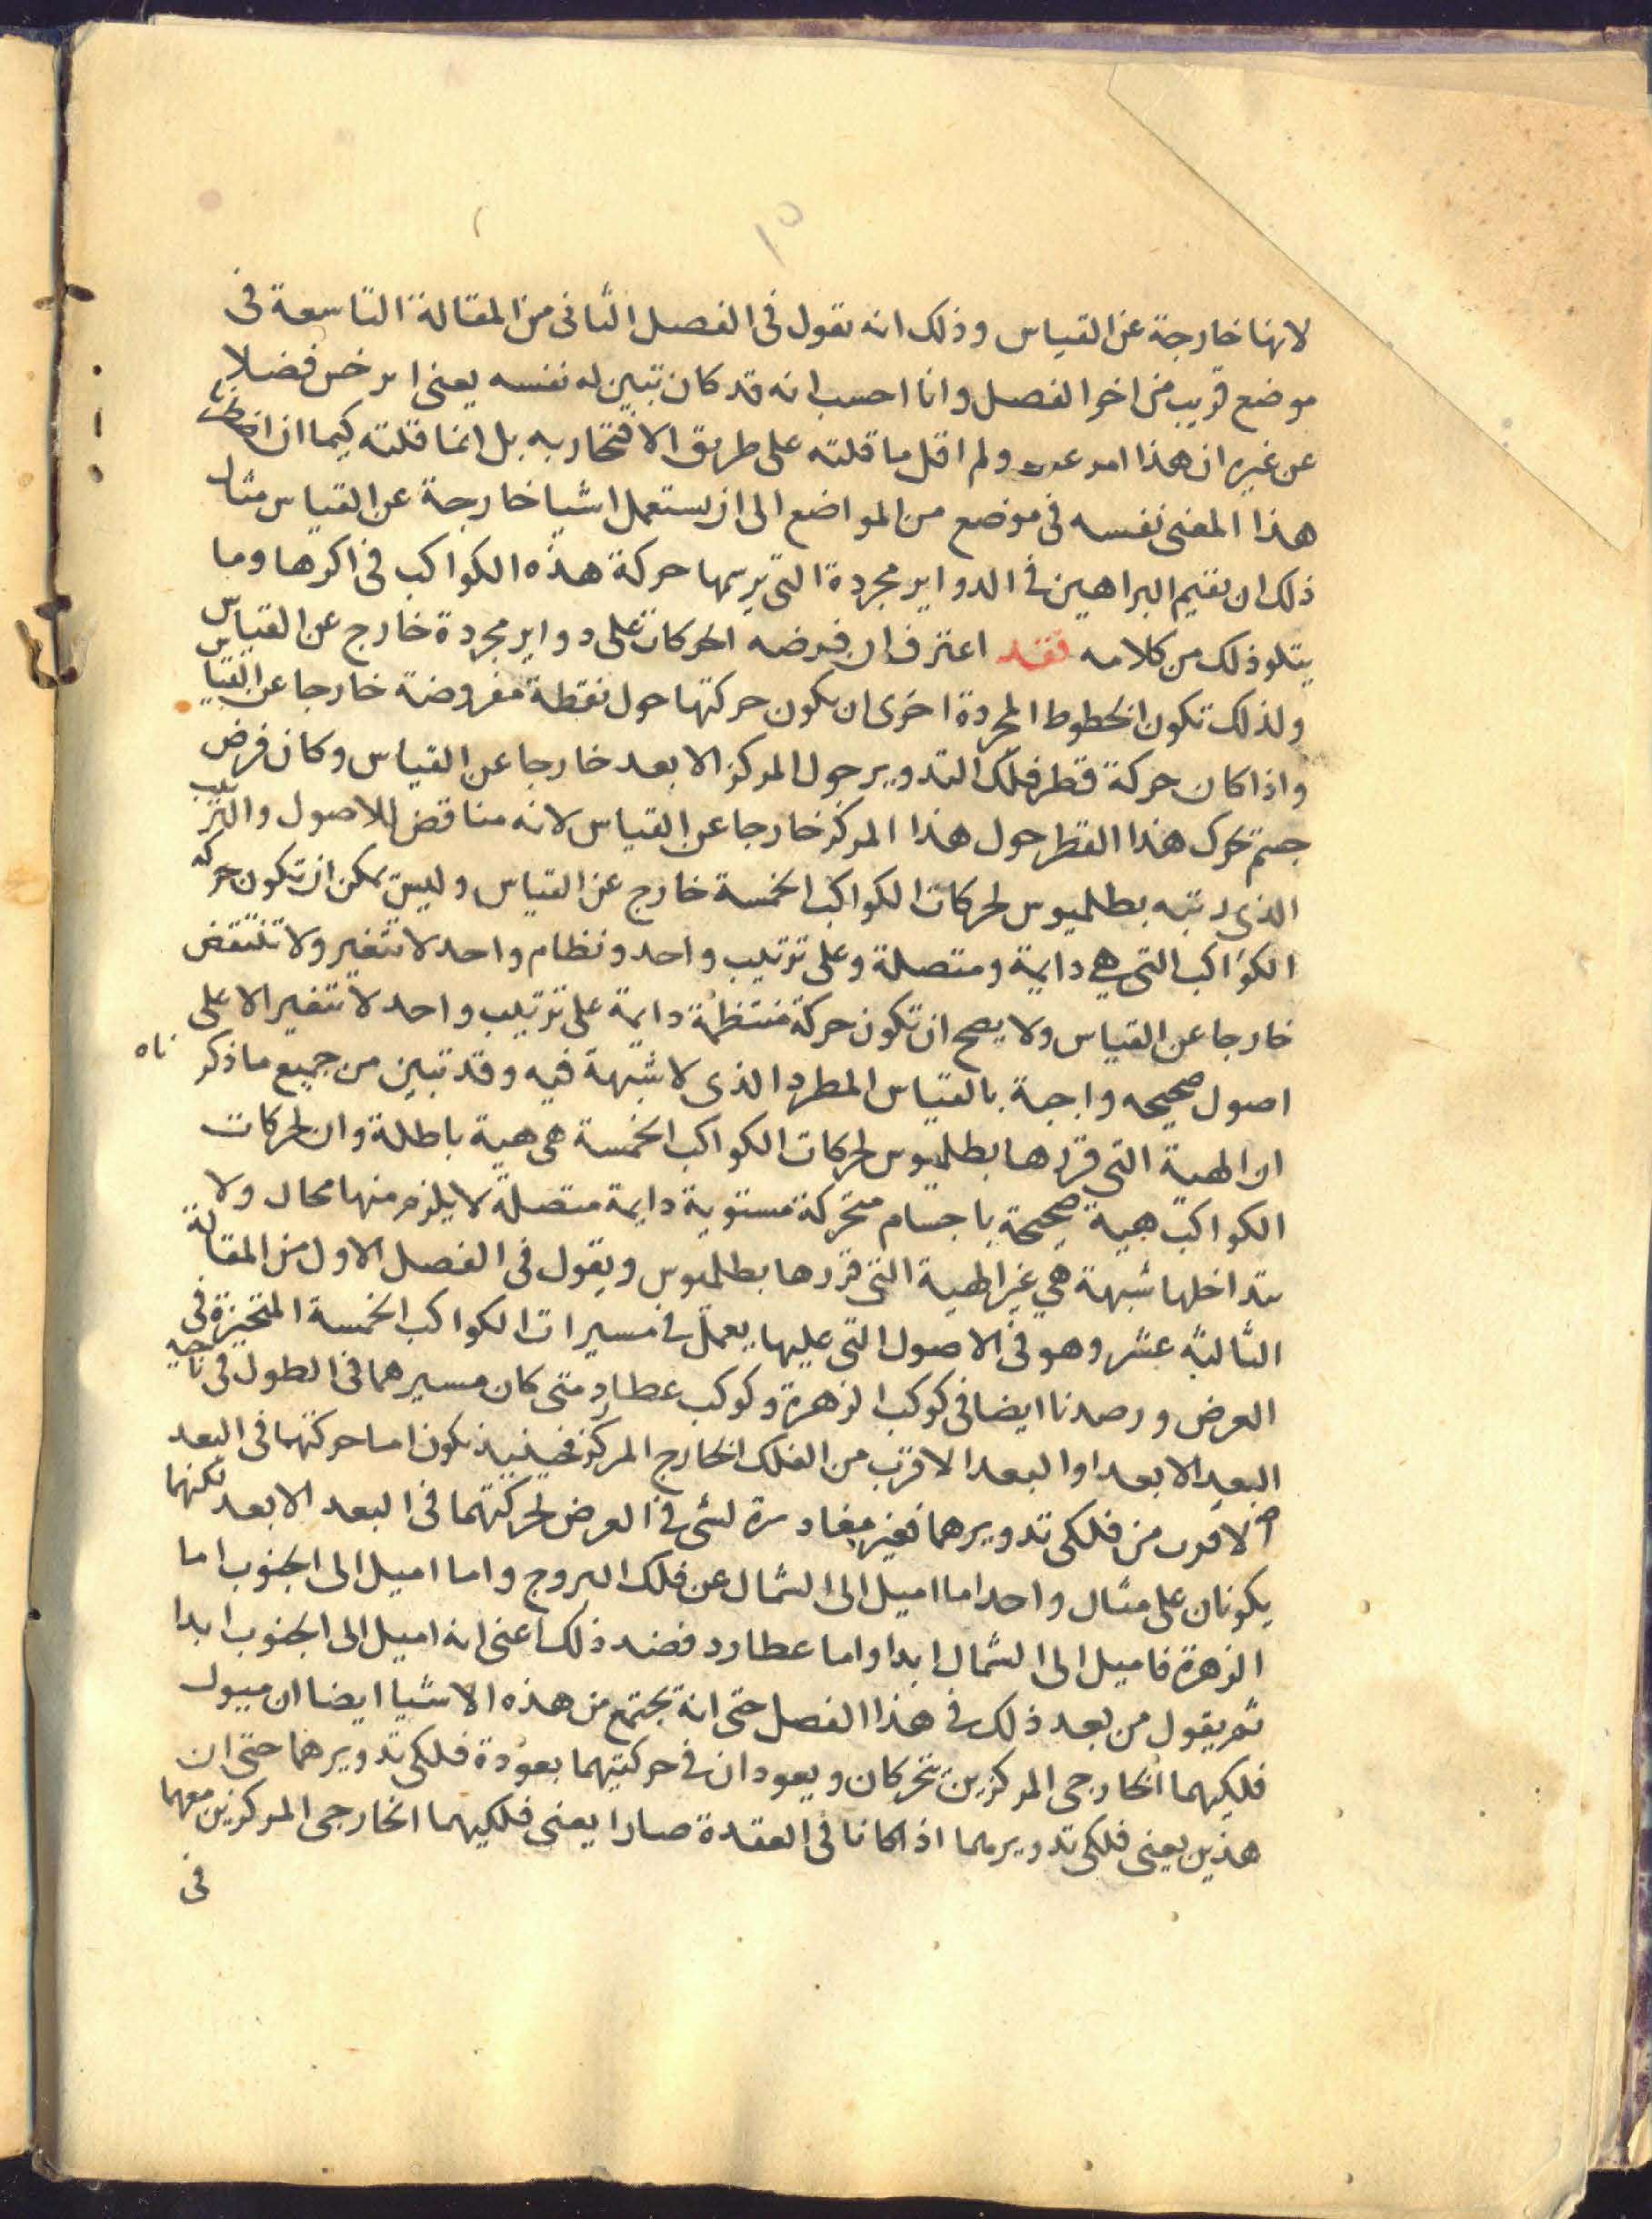 ١٥
لانها خارجة عن القياس وذلك انه يقول فى الفصل الثانى من المقالة التاسعة فى
موضع قريب من اخر الفصل وانا احسب انه قد كان تبين له نفسه يعنى ابرخس فضلا
عن غيره ان هذا امر ولم اقل ما قلته على طريق الافتخار به بل انما قلته كيما ان اضطر
هذا المعنى نفسه فى موضع من المواضع الى ان يستعمل اشيا خارجة عن القياس مثال
ذلك ان نقيم البراهين فى الدواير مجردة التى يرسمها حركة هذه الكواكب فى اكرها وما
يتلو ذلك من كلامه فقد اعترف ان فرضه الحركات على دواير مجردة خارج عن القياس
ولذلك تكون الخطوط المجردة اخرى ان يكون حركتها حول نقطة مفروضة خارجا عن القياس
واذا كان حركة قطر فلك التدوير حول المركز الابعد خارجا عن القياس وكان فرض
جسم تحرك هذا القطر حول هذا المركز خارجا عن القياس لانه مناقض للاصول والترتيب
الذى رتبه بطلميوس لحركات الكواكب الخمسة خارج عن القياس وليس يمكن ان تكون حركة
الكواكب التى هي دايمة ومتصلة وعلى ترتيب واحد ونظام واحد لا تتغير ولا تنتقض
خارجا عن القياس ولا يصح ان تكون حركة منتظمة دايمة على ترتيب واحد لا تتغير الا على
اصول صحيحه واجبة بالقياس المطرد الذى لا شبهة فيه وقد تبين من جميع ما ذكرناه
ان الهية التى قررها بطلميوس لحركات الكواكب الخمسة هى هية باطلة وان لحركات
الكواكب هية صحيحة باجسام متحركة مستوية دايمة متصلة لا يلزم منها محال ولا
يتداخلها شبهة هي غير الهية التى قررها بطلميوس ويقول فى الفصل الاول من المقالة
الثالثة عشر وهو فى الاصول التى عليها يعمل فى مسيرات الكواكب الخمسة المتحيزة فى
العرض ورصدنا ايضا فى كوكب الزهرة وكوكب عطارد متى كان مسيرهما فى الطول فى ناحيه
البعد الابعد او البعد الاقرب من الفلك الخارج المركز فحينيذ يكون اما حركتهما فى البعد
الاقرب من فلكى تدويرهما فغير مغادرة لشى فى العرض لحركتهما فى البعد الابعد لكنهما
يكونان على مثال واحد اما اميل الى الشمال عن فلك البروج واما اميل الى الجنوب اما
الزهرة فاميل الى الشمال ابدا واما عطارد فضد ذلك اعنى انه اميل الى الجنوب ابدا
ثم يقول من بعد ذلك فى هذا الفصل حتى انه تجتمع من هذه الاشيا ايضا ان ميول
فلكيهما الخارجى المركزين تتحركان ويعودان فى حركتيهما بعودة فلكى تدويرهما حتى ان
هذين يعنى فلكى تدويرهما اذا كانا فى العقدة صارا يعنى فلكيهما الخارجى المركزين معهما
فى